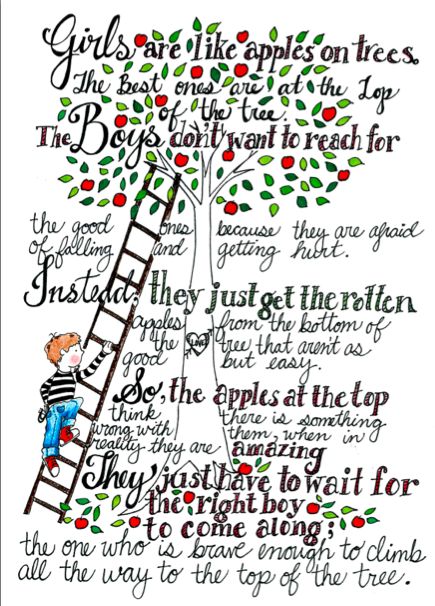 Girls are like apples on trees.
The Best ones are at the Top
of the tree.
The Boys don't want to reach for
the good ones because they are afraid
of falling and getting hurt.
Instead, they just get the rotten
apples from the bottom of
the tree that aren't as
good but easy.
LOVE
So, the apples at the top
think there is something
wrong with them, when in
reality they are amazing
They just have to wait for
the right boy
to come along;
the one who is brave enough to climb
all the way to the top of the tree.